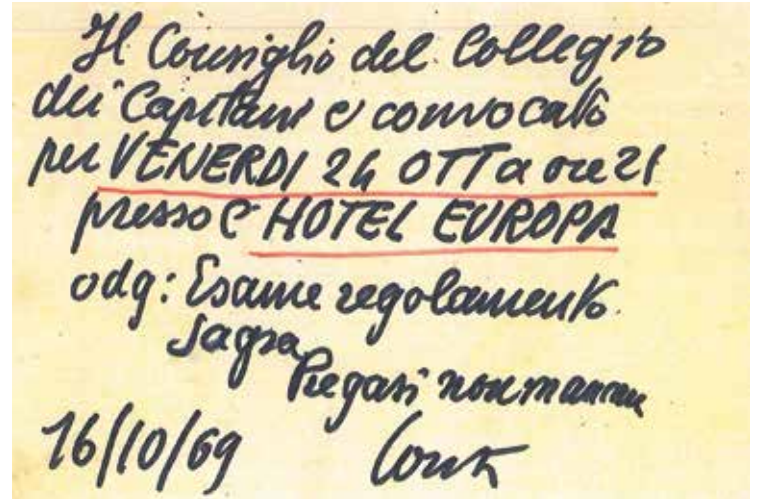 Il Consiglio del Collegio
dei Capitani è convocato
per VENERDI 24 OTT a ore 21
presso l' HOTEL EUROPA
odg: Esame regolamento
Sagra
Pregasi non mancare
16/10/69